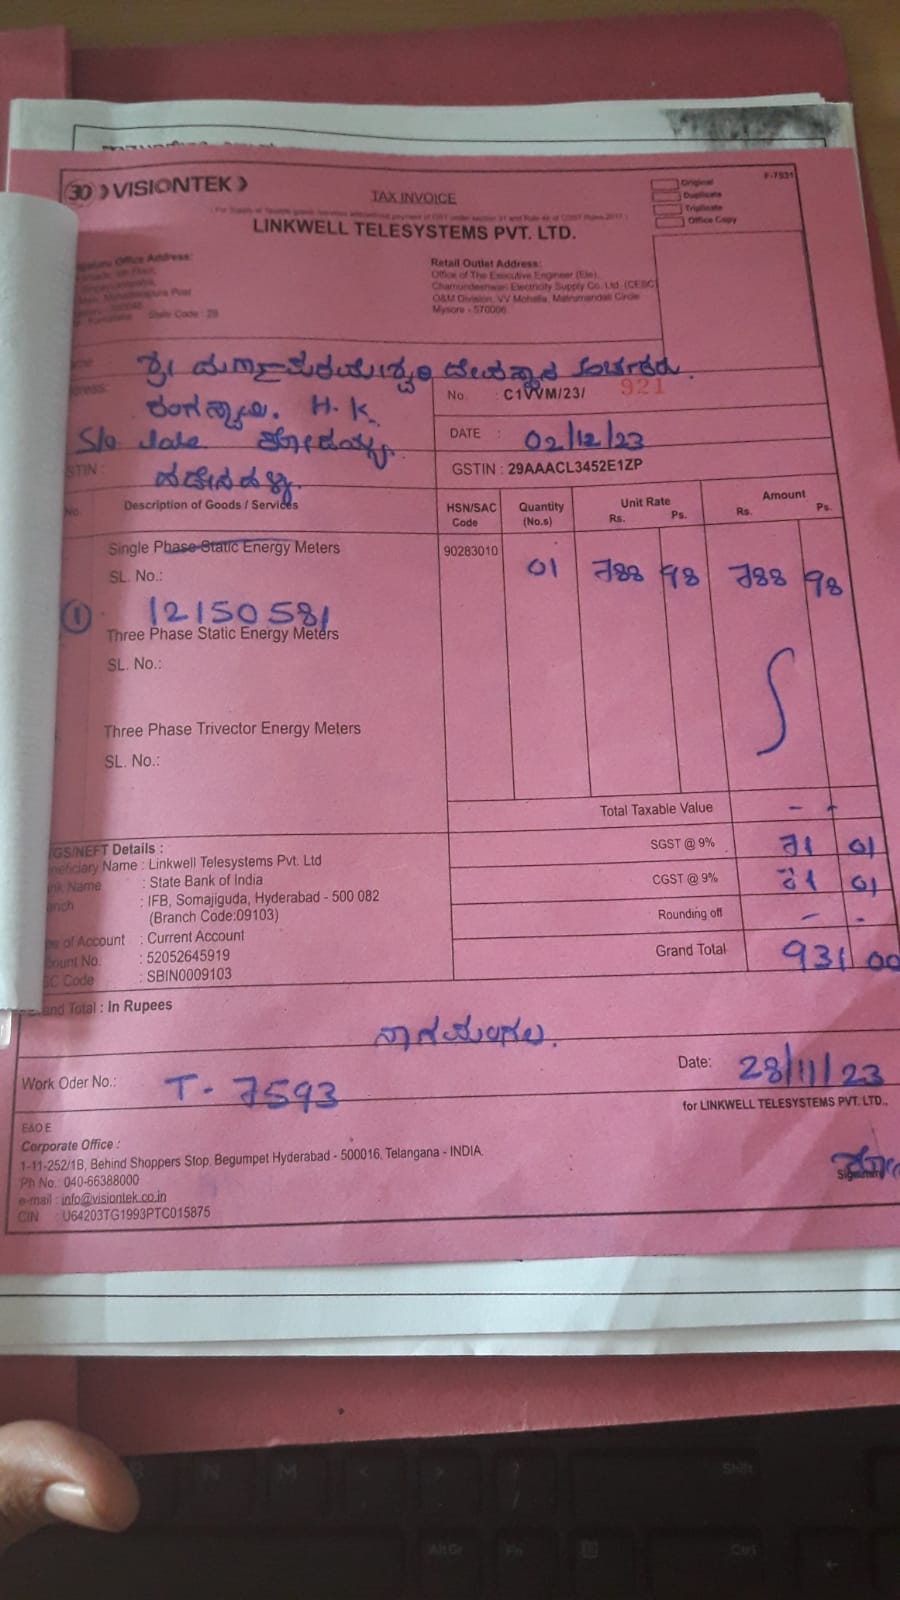 VISIONTEK
TAX INVOICE
LINKWELL TELESYSTEMS PVT. LTD.
Original
Duplicate
Triplicate
Office Copy
F-7531
Office Address:
State Code : 29
Retail Outlet Address:
Office of The Executive Engineer (Ele),
Chamundeshwari Electricity Supply Co. Ltd. (CESC)
O&M Division, VV Mohalla, Matrumandali Circle
Mysore - 570006
ಶ್ರೀ
H.K.
S/o late
No. : C1VVM/23/ 921
DATE : 02/12/23
GSTIN : 29AAACL3452E1ZP
Description of Goods / Services
HSN/SAC Code
Quantity (No.s)
Unit Rate Rs. Ps.
Amount Rs. Ps.
Single Phase Static Energy Meters 90283010 01 788 98 788 98
SL. No.:
① 12150581
Three Phase Static Energy Meters
SL. No.:
Three Phase Trivector Energy Meters
SL. No.:
Total Taxable Value - -
SGST @ 9% 71 01
CGST @ 9% 71 01
Rounding off - -
Grand Total 931 00
GS/NEFT Details :
eneficiary Name : Linkwell Telesystems Pvt. Ltd
nk Name : State Bank of India
anch : IFB, Somajiguda, Hyderabad - 500 082
(Branch Code:09103)
of Account : Current Account
ount No. : 52052645919
SC Code : SBIN0009103
and Total : In Rupees
ನಾಗಮಂಗಲ.
Work Oder No.: T-7593
Date: 28/11/23
for LINKWELL TELESYSTEMS PVT. LTD.,
E&O.E
Corporate Office :
1-11-252/1B, Behind Shoppers Stop, Begumpet Hyderabad - 500016, Telangana - INDIA.
Ph No. 040-66388000
e-mail : info@visiontek.co.in
CIN : U64203TG1993PTC015875
N M < > ? /
Shift
AltGr Fn Ctrl